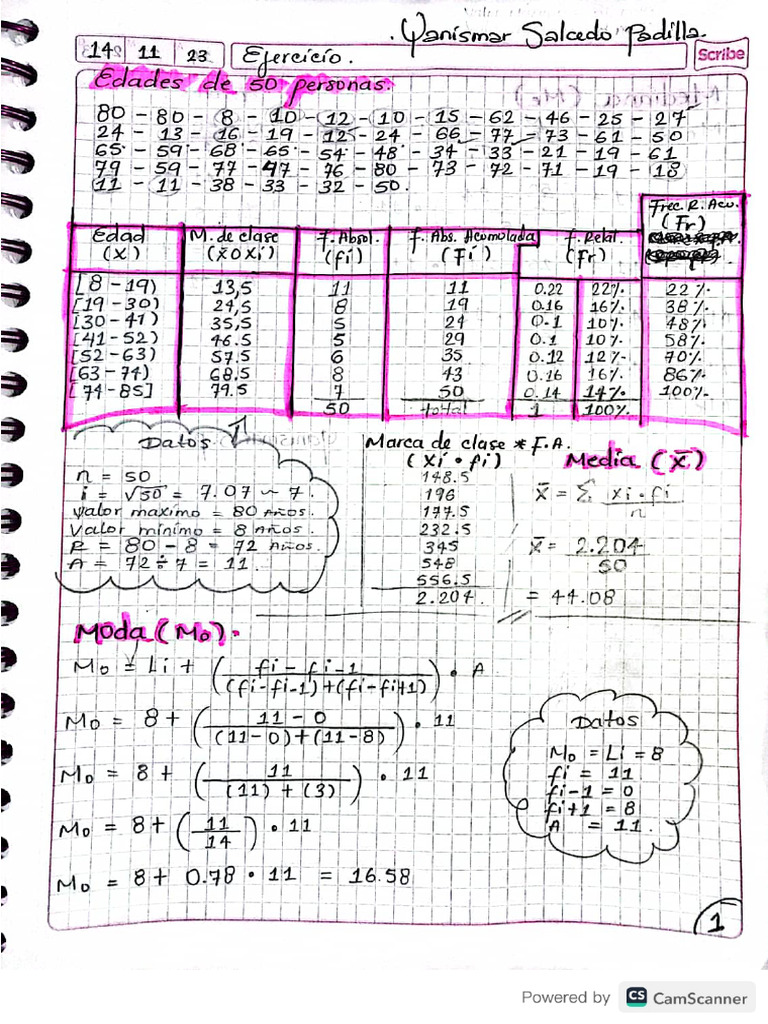 . Yanismar Salcedo Padilla.
14 11 23 Ejercicio. Scribe
Edades de 50 personas.
80 - 80 - 8 - 10 - 12 - 10 - 15 - 62 - 46 - 25 - 27
24 - 13 - 16 - 19 - 125 - 24 - 66 - 77 - 73 - 61 - 50
65 - 59 - 68 - 65 - 54 - 48 - 34 - 33 - 21 - 19 - 61
79 - 59 - 77 - 47 - 76 - 80 - 73 - 72 - 71 - 19 - 18
11 - 11 - 38 - 33 - 32 - 50.
Edad (x) M. de clase (x̄ o xi) F. Absol. (fi) F. Abs. Acumulada (Fi) f. Relat. (Fr) Frec. R. Acu. (Fr)
[8 - 19) 13,5 11 11 0.22 22% 22%
[19 - 30) 24,5 8 19 0.16 16% 38%
[30 - 41) 35,5 5 24 0.1 10% 48%
[41 - 52) 46.5 5 29 0.1 10% 58%
[52 - 63) 57.5 6 35 0.12 12% 70%
[63 - 74) 68.5 8 43 0.16 16% 86%
[74 - 85] 79.5 7 50 0.14 14% 100%
50 total 1 100%
Datos
n = 50
i = √50 = 7.07 ~ 7.
Valor maximo = 80 Años.
Valor minimo = 8 Años.
R = 80 - 8 = 72 Años.
A = 72 ÷ 7 = 11.
Marca de clase * F.A.
(xi • fi)
148.5
196
177.5
232.5
345
548
556.5
2.204.
Media (x̄)
x̄ = Σ xi • fi / n
x̄ = 2.204 / 50
= 44.08
Moda (Mo).
Mo = Li + (fi - fi-1 / (fi-fi-1)+(fi-fi+1)) • A
Mo = 8 + (11 - 0 / (11-0)+(11-8)) • 11
Mo = 8 + (11 / (11) + (3)) • 11
Mo = 8 + (11 / 14) • 11
Mo = 8 + 0.78 • 11 = 16.58
Datos
Mo = Li = 8
fi = 11
fi-1 = 0
fi+1 = 8
A = 11.
1
Powered by CS CamScanner